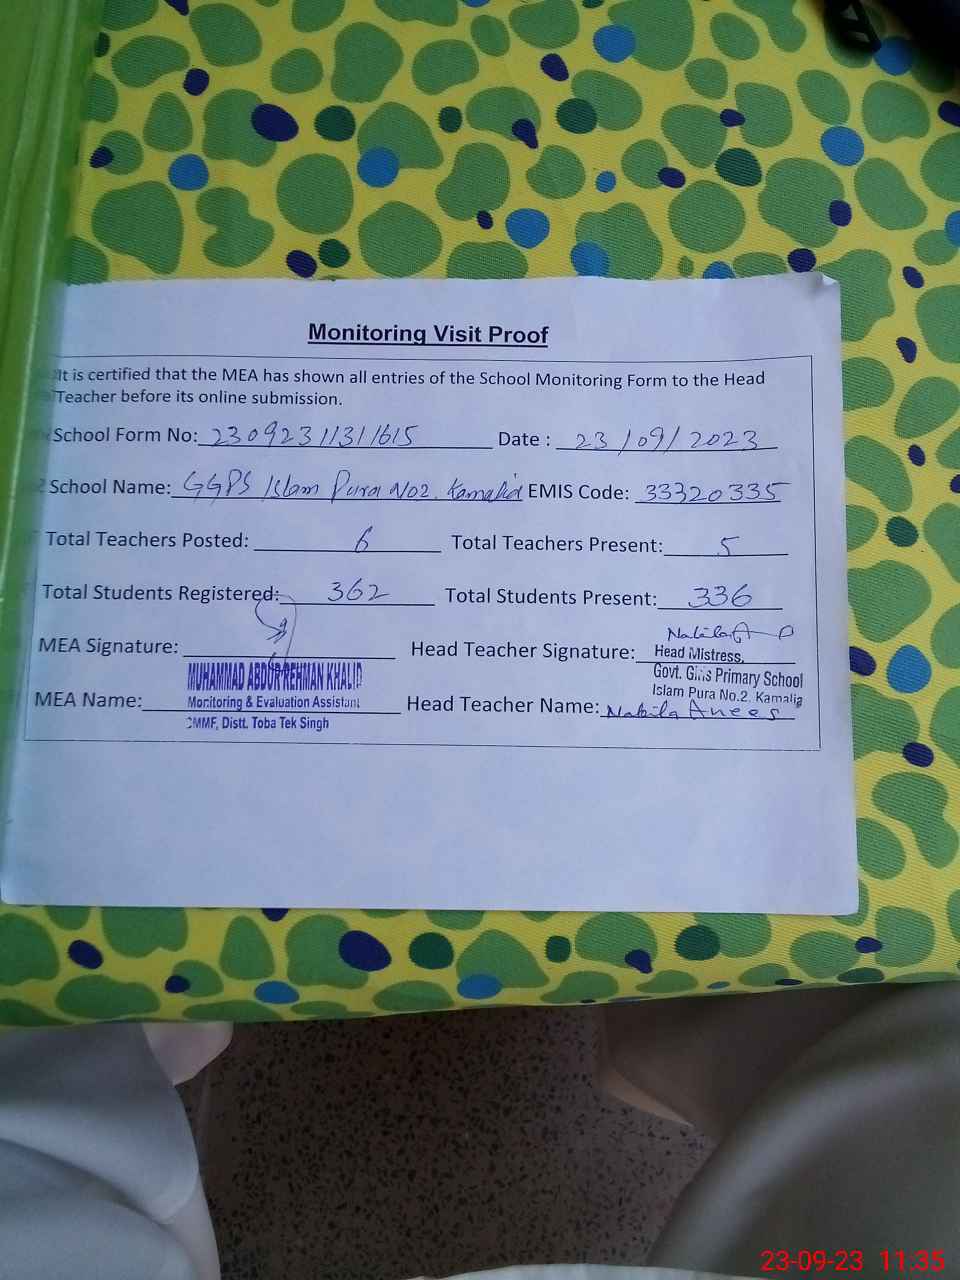 Monitoring Visit Proof
It is certified that the MEA has shown all entries of the School Monitoring Form to the Head
Teacher before its online submission.
School Form No: 23092311311615 Date : 23/09/2023
School Name: GGPS Islam Pura No2. Kamalia EMIS Code: 33320335
Total Teachers Posted: 6 Total Teachers Present: 5
Total Students Registered: 362 Total Students Present: 336
MEA Signature: Head Teacher Signature: Nabila
Head Mistress,
MUHAMMAD ABDUR REHMAN KHALID Govt. Girls Primary School
MEA Name: Monitoring & Evaluation Assistant Islam Pura No.2. Kamalia
Head Teacher Name: Nabila Anees
CMMF, Distt. Toba Tek Singh
23-09-23 11:35